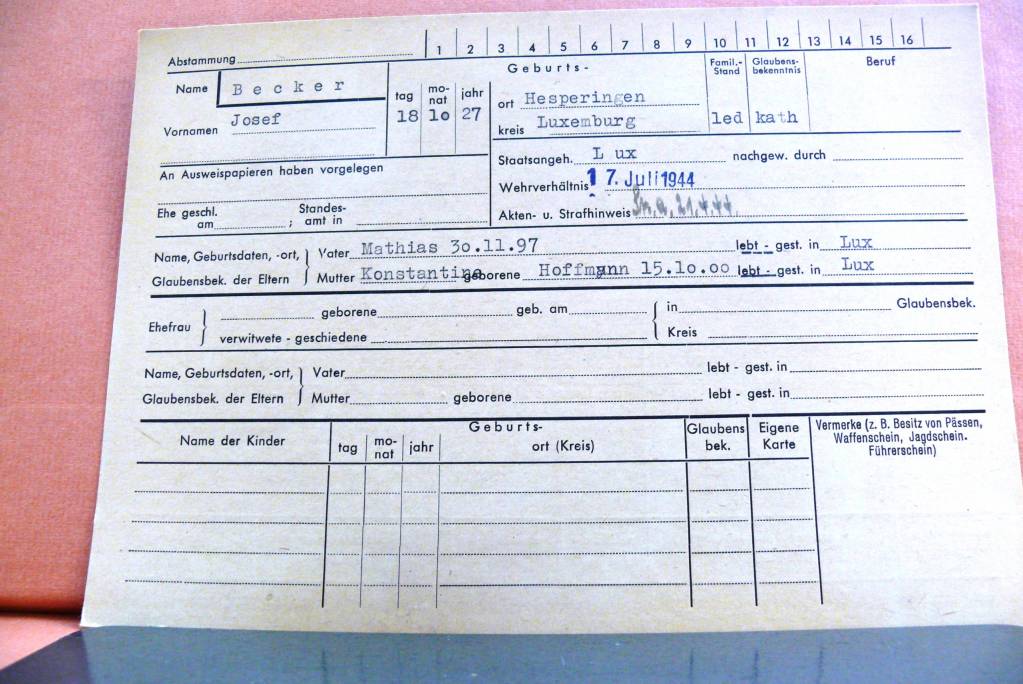 Abstammung 1 2 3 4 5 6 7 8 9 10 11 12 13 14 15 16
Name Becker
Vornamen Josef
Geburts-
tag mo-nat jahr
18 10 27
ort Hesperingen
kreis Luxemburg
Famil.-Stand Glaubens-bekenntnis Beruf
led kath
An Ausweispapieren haben vorgelegen
Staatsangeh. Lux nachgew. durch
Wehrverhältnis 17. Juli 1944
Ehe geschl. am ; Standes-amt in
Akten- u. Strafhinweis
Name, Geburtsdaten, -ort, Vater Mathias 30.11.97 lebt - gest. in Lux
Glaubensbek. der Eltern Mutter Konstantine geborene Hoffmann 15.10.00 lebt - gest. in Lux
Ehefrau geborene geb. am in Glaubensbek.
verwitwete - geschiedene Kreis
Name, Geburtsdaten, -ort, Vater lebt - gest. in
Glaubensbek. der Eltern Mutter geborene lebt - gest. in
Name der Kinder
Geburts-
tag mo-nat jahr ort (Kreis)
Glaubens bek.
Eigene Karte
Vermerke (z. B. Besitz von Pässen,
Waffenschein, Jagdschein.
Führerschein)